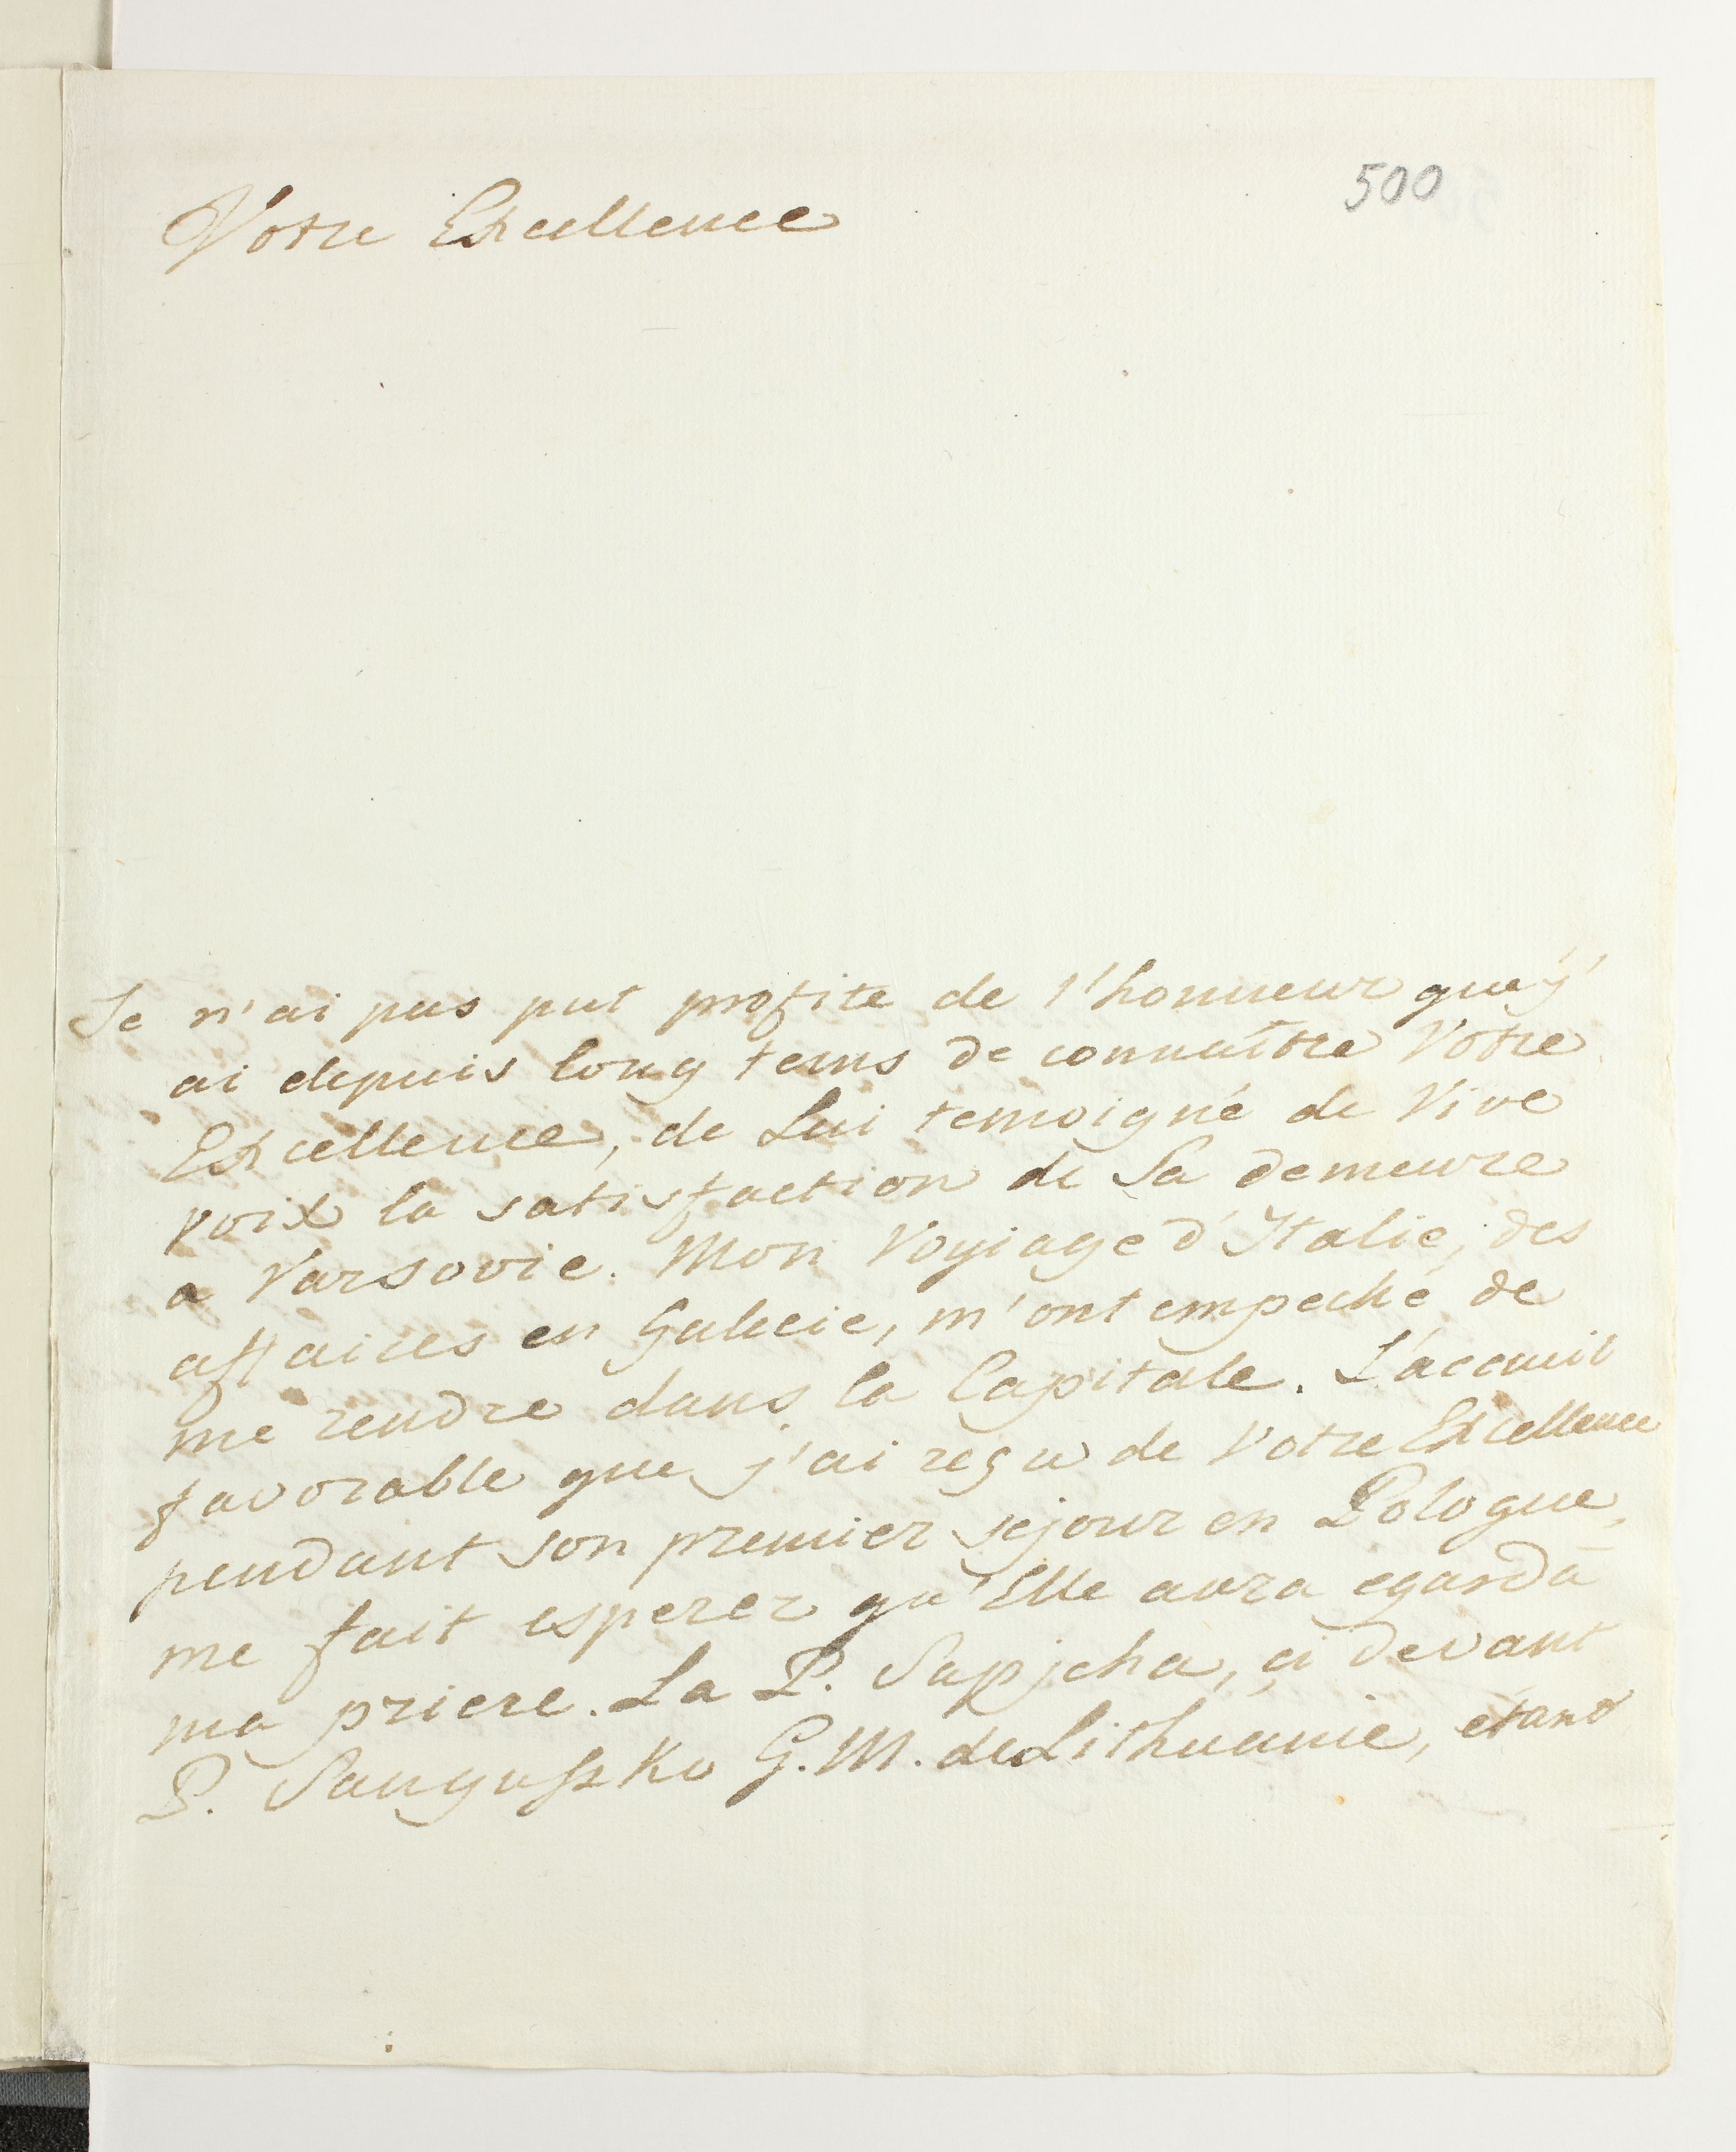 500
Votre Excellence
Je n'ai pas put profite de l'honneur que j'
ai depuis long tems de connuître Votre
Excellence, de Lui temoigné de Vive
voix la satisfaction de Sa demeure
a Varsovie. Mon Voyiage d'Italie, des
affaires en Galicie, m'ont empeché de
me rendre dans la Capitale. L'accueil
favorable que j'ai reçu de Votre Excellence
pendant son premier sejour en Pologne,
me fait esperer qu'Elle aura egard à
ma priere. La P. Sapjeha, çi devant
P. Sanguszko G. M. de Lithuanie, étant